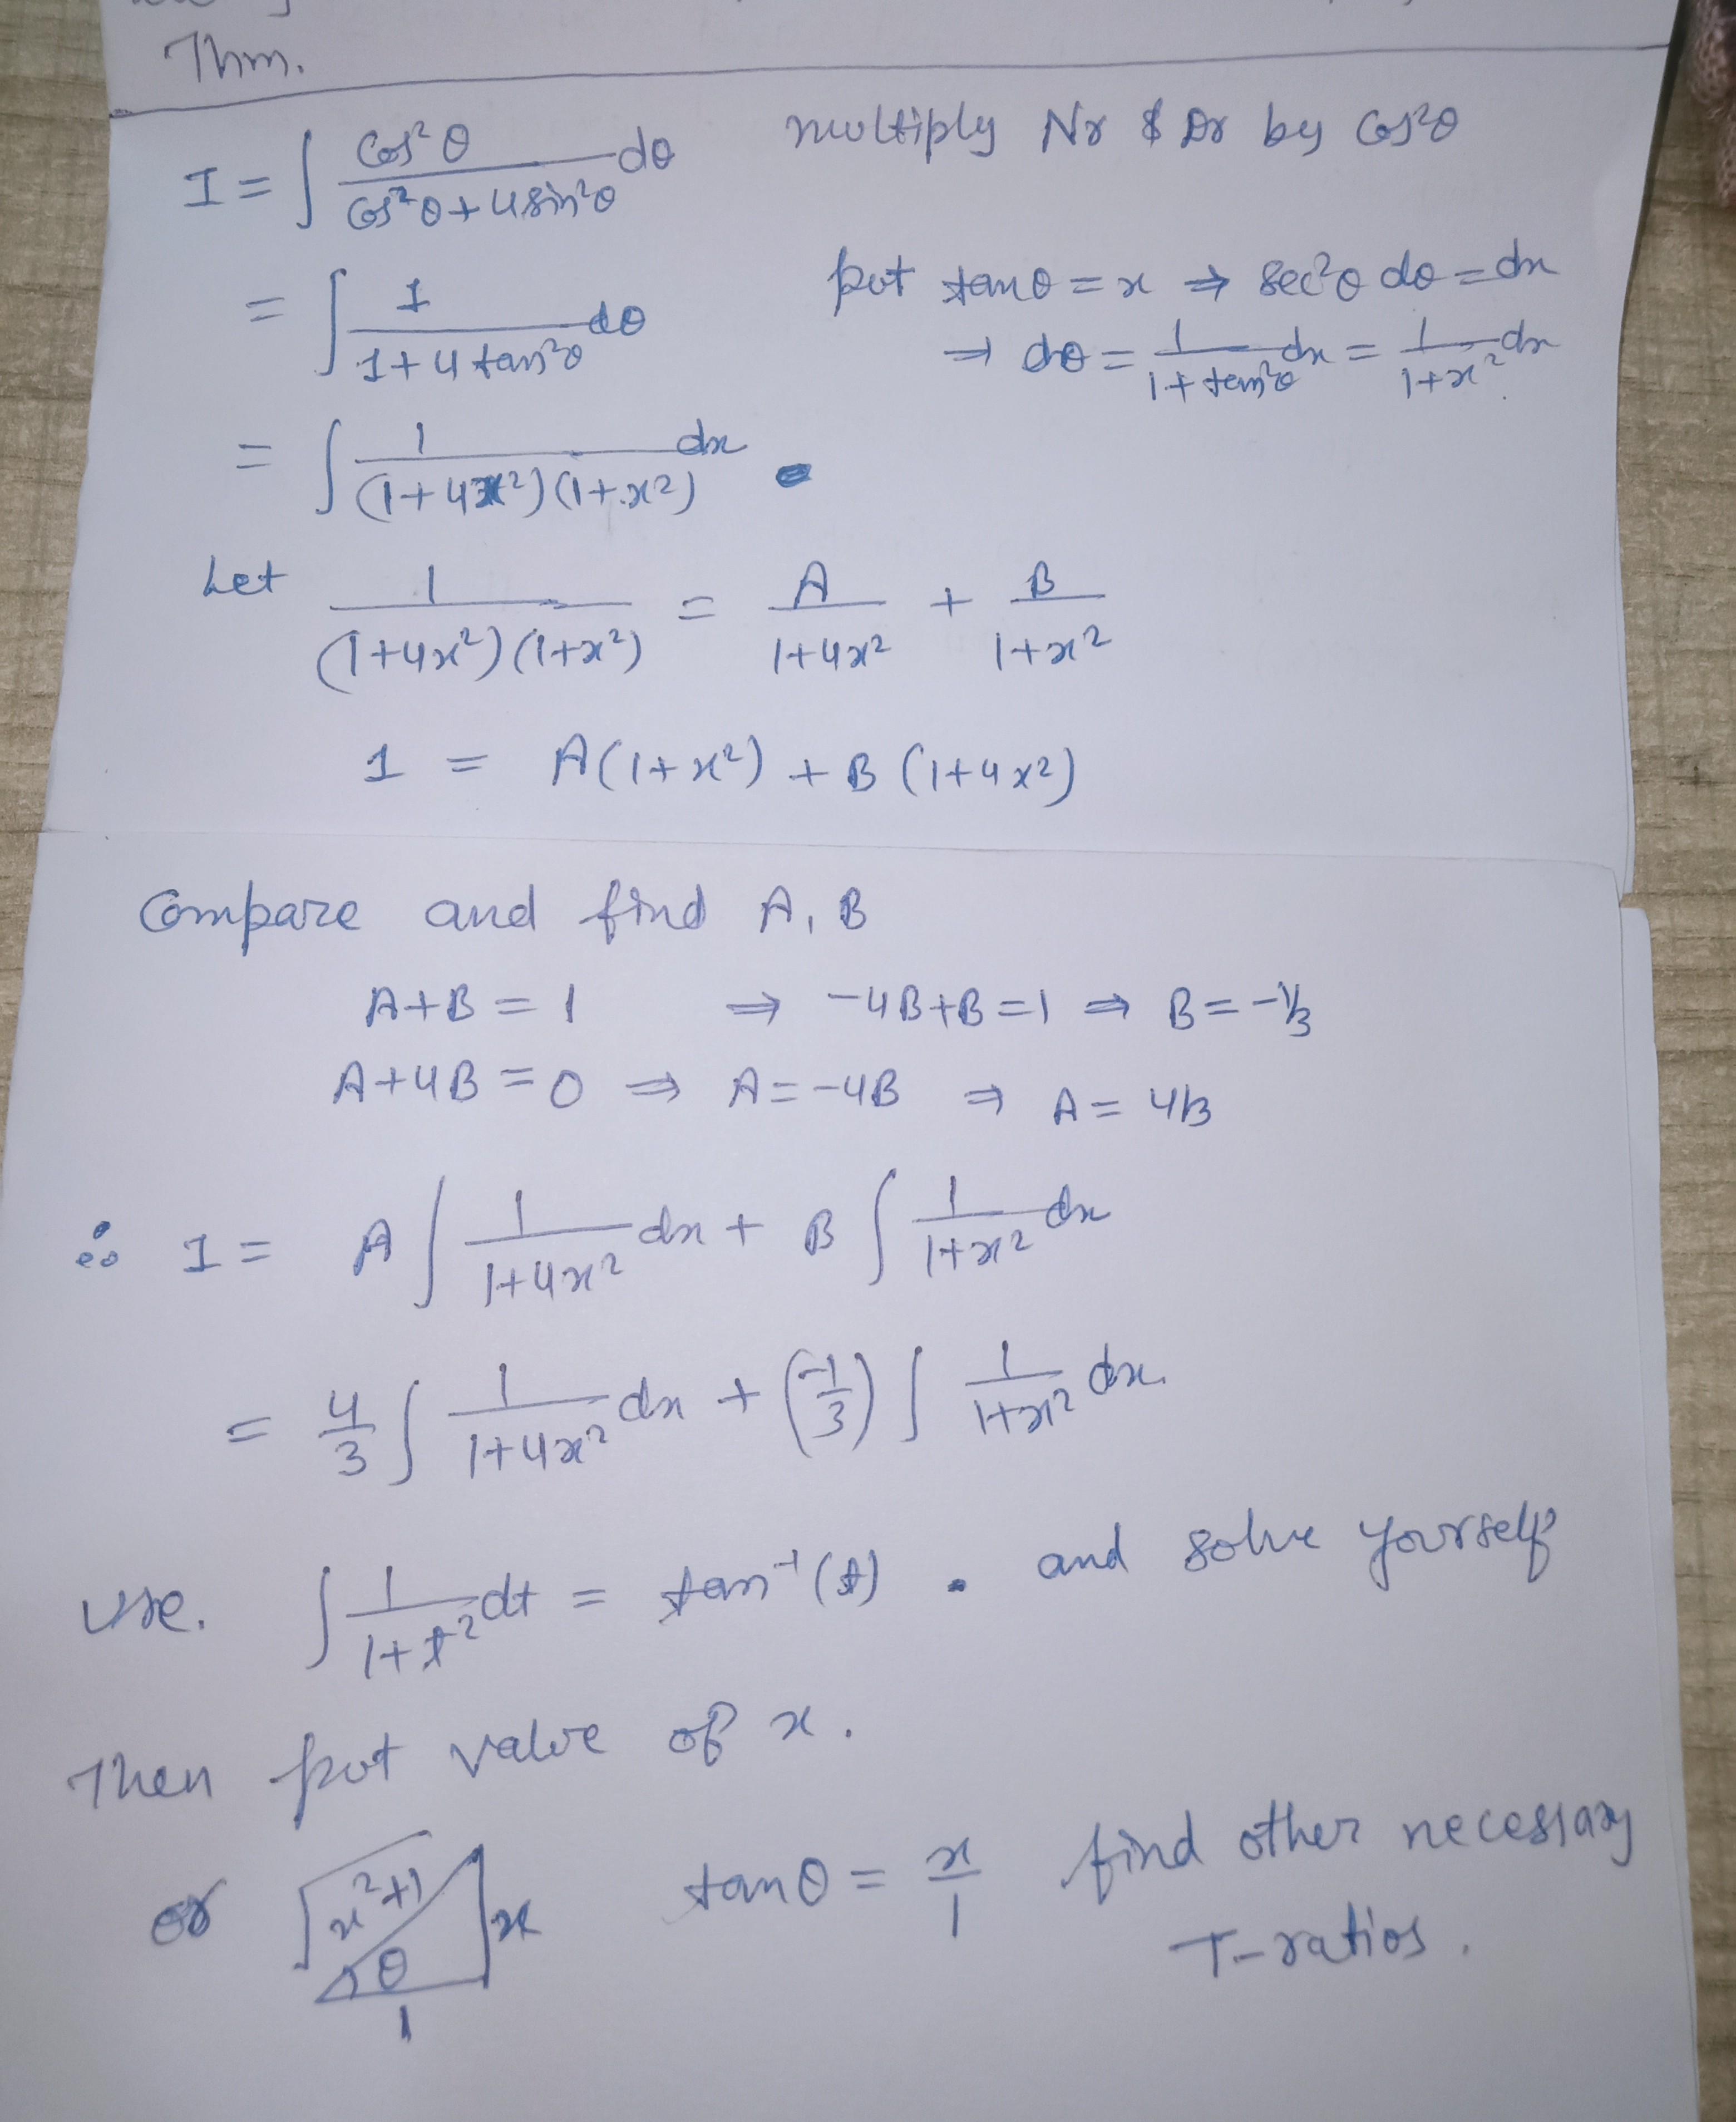 Thm.
I = ∫ cos²θ / (cos²θ + 4sin²θ) dθ multiply Nr & Dr by cos²θ
= ∫ 1 / (1 + 4 tan²θ) dθ put tanθ = x ⇒ sec²θ dθ = dx
⇒ dθ = 1/(1 + tan²θ) dx = 1/(1+x²) dx
= ∫ 1 / ((1+4x²)(1+x²)) dx
Let 1 / ((1+4x²)(1+x²)) = A/(1+4x²) + B/(1+x²)
1 = A(1+x²) + B(1+4x²)
Compare and find A, B
A+B = 1 ⇒ -4B+B=1 ⇒ B = -1/3
A+4B = 0 ⇒ A = -4B ⇒ A = 4/3
∴ I = A ∫ 1/(1+4x²) dx + B ∫ 1/(1+x²) dx
= 4/3 ∫ 1/(1+4x²) dx + (-1/3) ∫ 1/(1+x²) dx.
Use. ∫ 1/(1+t²) dt = tan⁻¹(t) . and solve yourself
Then put value of x.
or √(x²+1) x θ 1 tanθ = x/1 find other necessary
T-ratios.